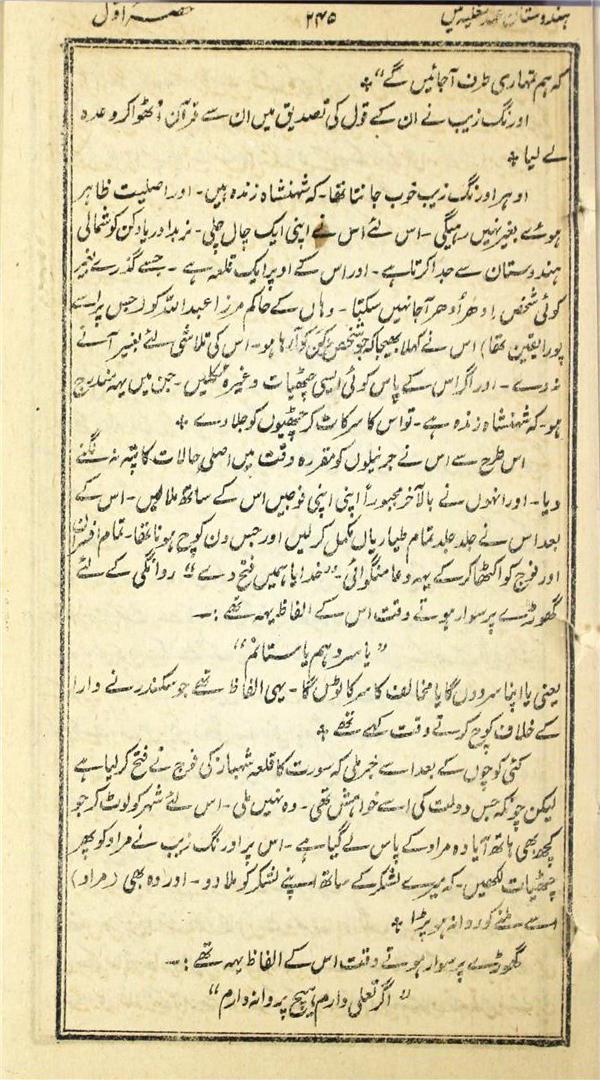 ہندوستان عہد مغلیہ میں ۲۴۵ حصہ اول
کہ ہم تمہاری طرف آجائیں گے" ❖
اورنگ زیب نے ان کے قول کی تصدیق میں ان سے قرآن اٹھوا کر وعدہ
لے لیا ❖
ادہر اورنگ زیب خوب جانتا تھا۔ کہ شہنشاہ زندہ ہیں۔ اور اصلیت ظاہر
ہوئے بغیر نہیں رہیگی۔ اس لئے اس نے اپنی ایک چال چلی۔ نربدا دریا دکن کو شمالی
ہندوستان سے جدا کرتا ہے۔ اور اس کے اوپر ایک قلعہ ہے۔ جسے گذرے بغیر
کوئی شخص اِدھر اُدھر آجا نہیں سکتا۔ وہاں کے حاکم مرزا عبد اللہ کو (جس پر اسے
پورا یقین تھا) اس نے کہلا بھیجا کہ جو شخص دکن کو آرہا ہو۔ اس کی تلاشی لئے بغیر آنے
نہ دے۔ اور اگر اس کے پاس کوئی ایسی چٹھیات وغیرہ نکلیں۔ جن میں یہہ مندرج
ہو۔ کہ شہنشاہ زندہ ہے۔ تو اس کا سر کاٹ کر چٹھیوں کو جلا دے ❖
اس طرح سے اس نے جرنیلوں کو مقررہ وقت میں اصلی حالات کا پتہ نہ لگنے
دیا۔ اور انہوں نے بالآخر مجبوراً اپنی اپنی فوجیں اس کے ساتھ ملا لیں۔ اس کے
بعد اس نے جلد جلد تمام طیاریاں مکمل کر لیں اور جس دن کوچ ہونا تھا۔ تمام افسران
اور فوج کو اکٹھا کر کے یہہ دعا منگوائی۔ "خدایا ہمیں فتح دے" روانگی کے لئے
گھوڑے پر سوار ہوتے وقت اس کے الفاظ یہہ تھے :۔
"یا سر دہم یا ستانم"
یعنی یا اپنا سر دوں گا یا مخالف کا سر کاٹوں گا۔ یہی الفاظ تھے جو سکندر نے دارا
کے خلاف کوچ کرتے وقت کہے تھے ❖
کئی کوچوں کے بعد اسے خبر ملی کہ سورت کا قلعہ شہباز کی فوج نے فتح کر لیا ہے
لیکن چونکہ جس دولت کی اسے خواہش تھی۔ وہ نہیں ملی۔ اس لئے شہر کو لوٹ کر جو
کچھ بھی ہاتھ آیا وہ مراد کے پاس لے گیا ہے۔ اس پر اورنگ زیب نے مراد کو پھر
چٹھیات لکھیں۔ کہ میرے لشکر کے ساتھ اپنے لشکر کو ملا دو۔ اور وہ بھی (مراد)
اسے ملنے کو روانہ ہو پڑا ❖
گھوڑے پر سوار ہوتے وقت اس کے الفاظ یہہ تھے :۔
"اگر تعلی دارم ہیچ پروا نہ دارم"